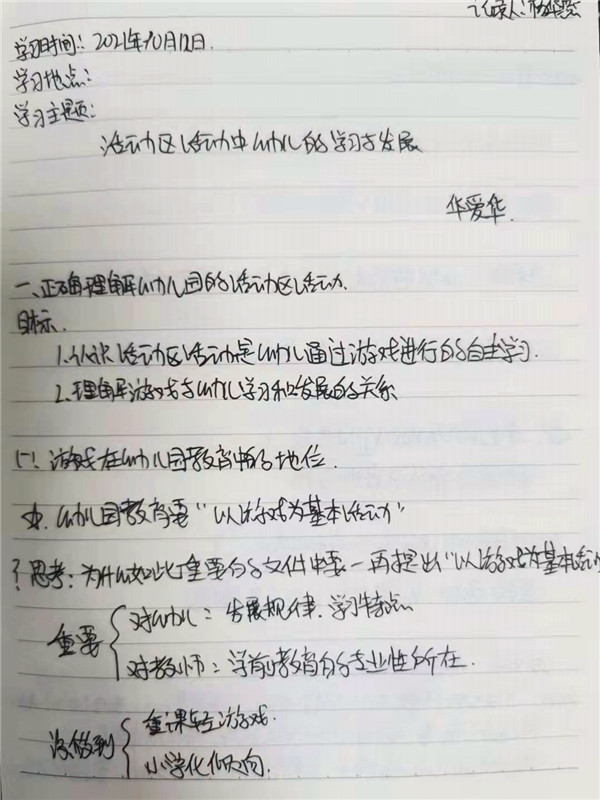 记录人：杨
学习时间：2021年10月12日.
学习地点：
学习主题：
活动区活动中幼儿的学习与发展
华爱华.
一、正确理解幼儿园的活动区活动.
目标.
1.认识活动区活动是幼儿通过游戏进行的自主学习.
2.理解游戏与幼儿学习和发展的关系
游戏在幼儿园教育中的地位.
幼儿园教育要“以游戏为基本活动”
？思考：为什么如此重要的文件中要一再提出“以游戏为基本活
重要 { 对幼儿：发展规律、学习特点
对教师：学前教育的专业性所在.
没做到 { 重课轻游戏.
小学化倾向.